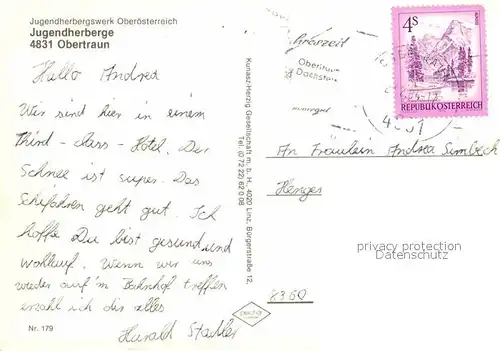 Jugendherbergswerk Oberösterreich
Jugendherberge
4831 Obertraun
Hallo Andrea
Wir sind hier in einem
Third-class-Hotel. Der
Schnee ist super. Das
Schifahren geht gut. Ich
hoffe Du bist gesund und
wohlauf. Wenn wir uns
wieder auf'm Bahnhof treffen
erzähl ich dir alles
Harald
Nr. 179
Kunasz-Herzig Gesellschaft m. b. H., 4020 Linz, Bürgerstraße 12,
Tel. (0 72 22) 62 0 08
Obertraun
Dachstein
4831
4S
REPUBLIK ÖSTERREICH
An Fräulein Andrea
8360
privacy protection
Datenschutz